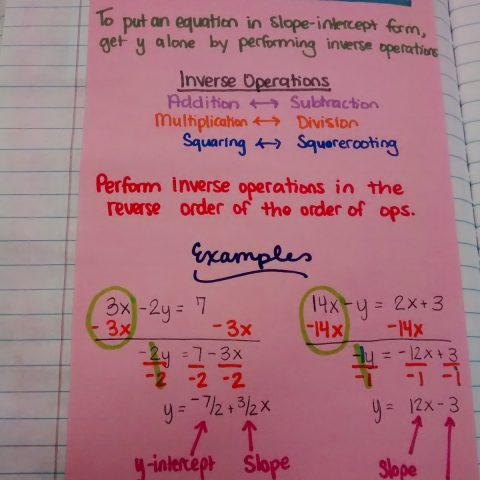 To put an equation in slope-intercept form,
get y alone by performing inverse operations
Inverse Operations
Addition ↔ Subtraction
Multiplication ↔ Division
Squaring ↔ Squarerooting
Perform inverse operations in the
reverse order of the order of ops.
Examples
3x - 2y = 7
- 3x - 3x
-2y = 7 - 3x
-2 -2 -2
y = -7/2 + 3/2 x
y-intercept Slope
14x - y = 2x + 3
-14x -14x
-1y = -12x + 3
-1 -1 -1
y = 12x - 3
Slope